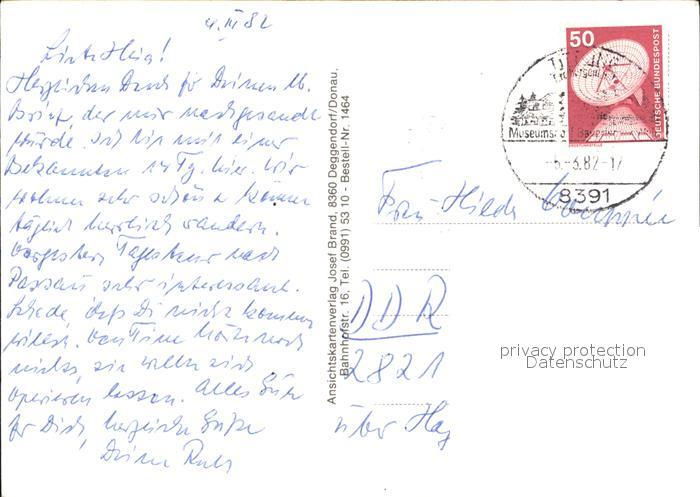 4. III 82
Liebe Heia!
Herzlichen Dank für Deinen lb.
Brief, der mir nachgesandt
wurde. Ich bin mit einer
Bekannten 14 Tg. hier. Wir
wohnen sehr schön u. können
täglich herrlich wandern.
Vorgestern Tagestour nach
Passau sehr interessant.
Schade, daß Du nicht kommen
willst. Von Tine hörte noch
nichts, sie wollte sich
operieren lassen. Alles Gute
für Dich, herzliche Grüße
Deine Ruth
Ansichtskartenverlag Josef Brand, 8360 Deggendorf/Donau,
Bahnhofstr. 16, Tel. (0991) 53 10 - Bestell-Nr. 1464
50
DEUTSCHE BUNDESPOST
TITTLING
Museumsdorf
-6.-3.82-17
8391
Frau
DDR
2821
über Hag
privacy protection
Datenschutz